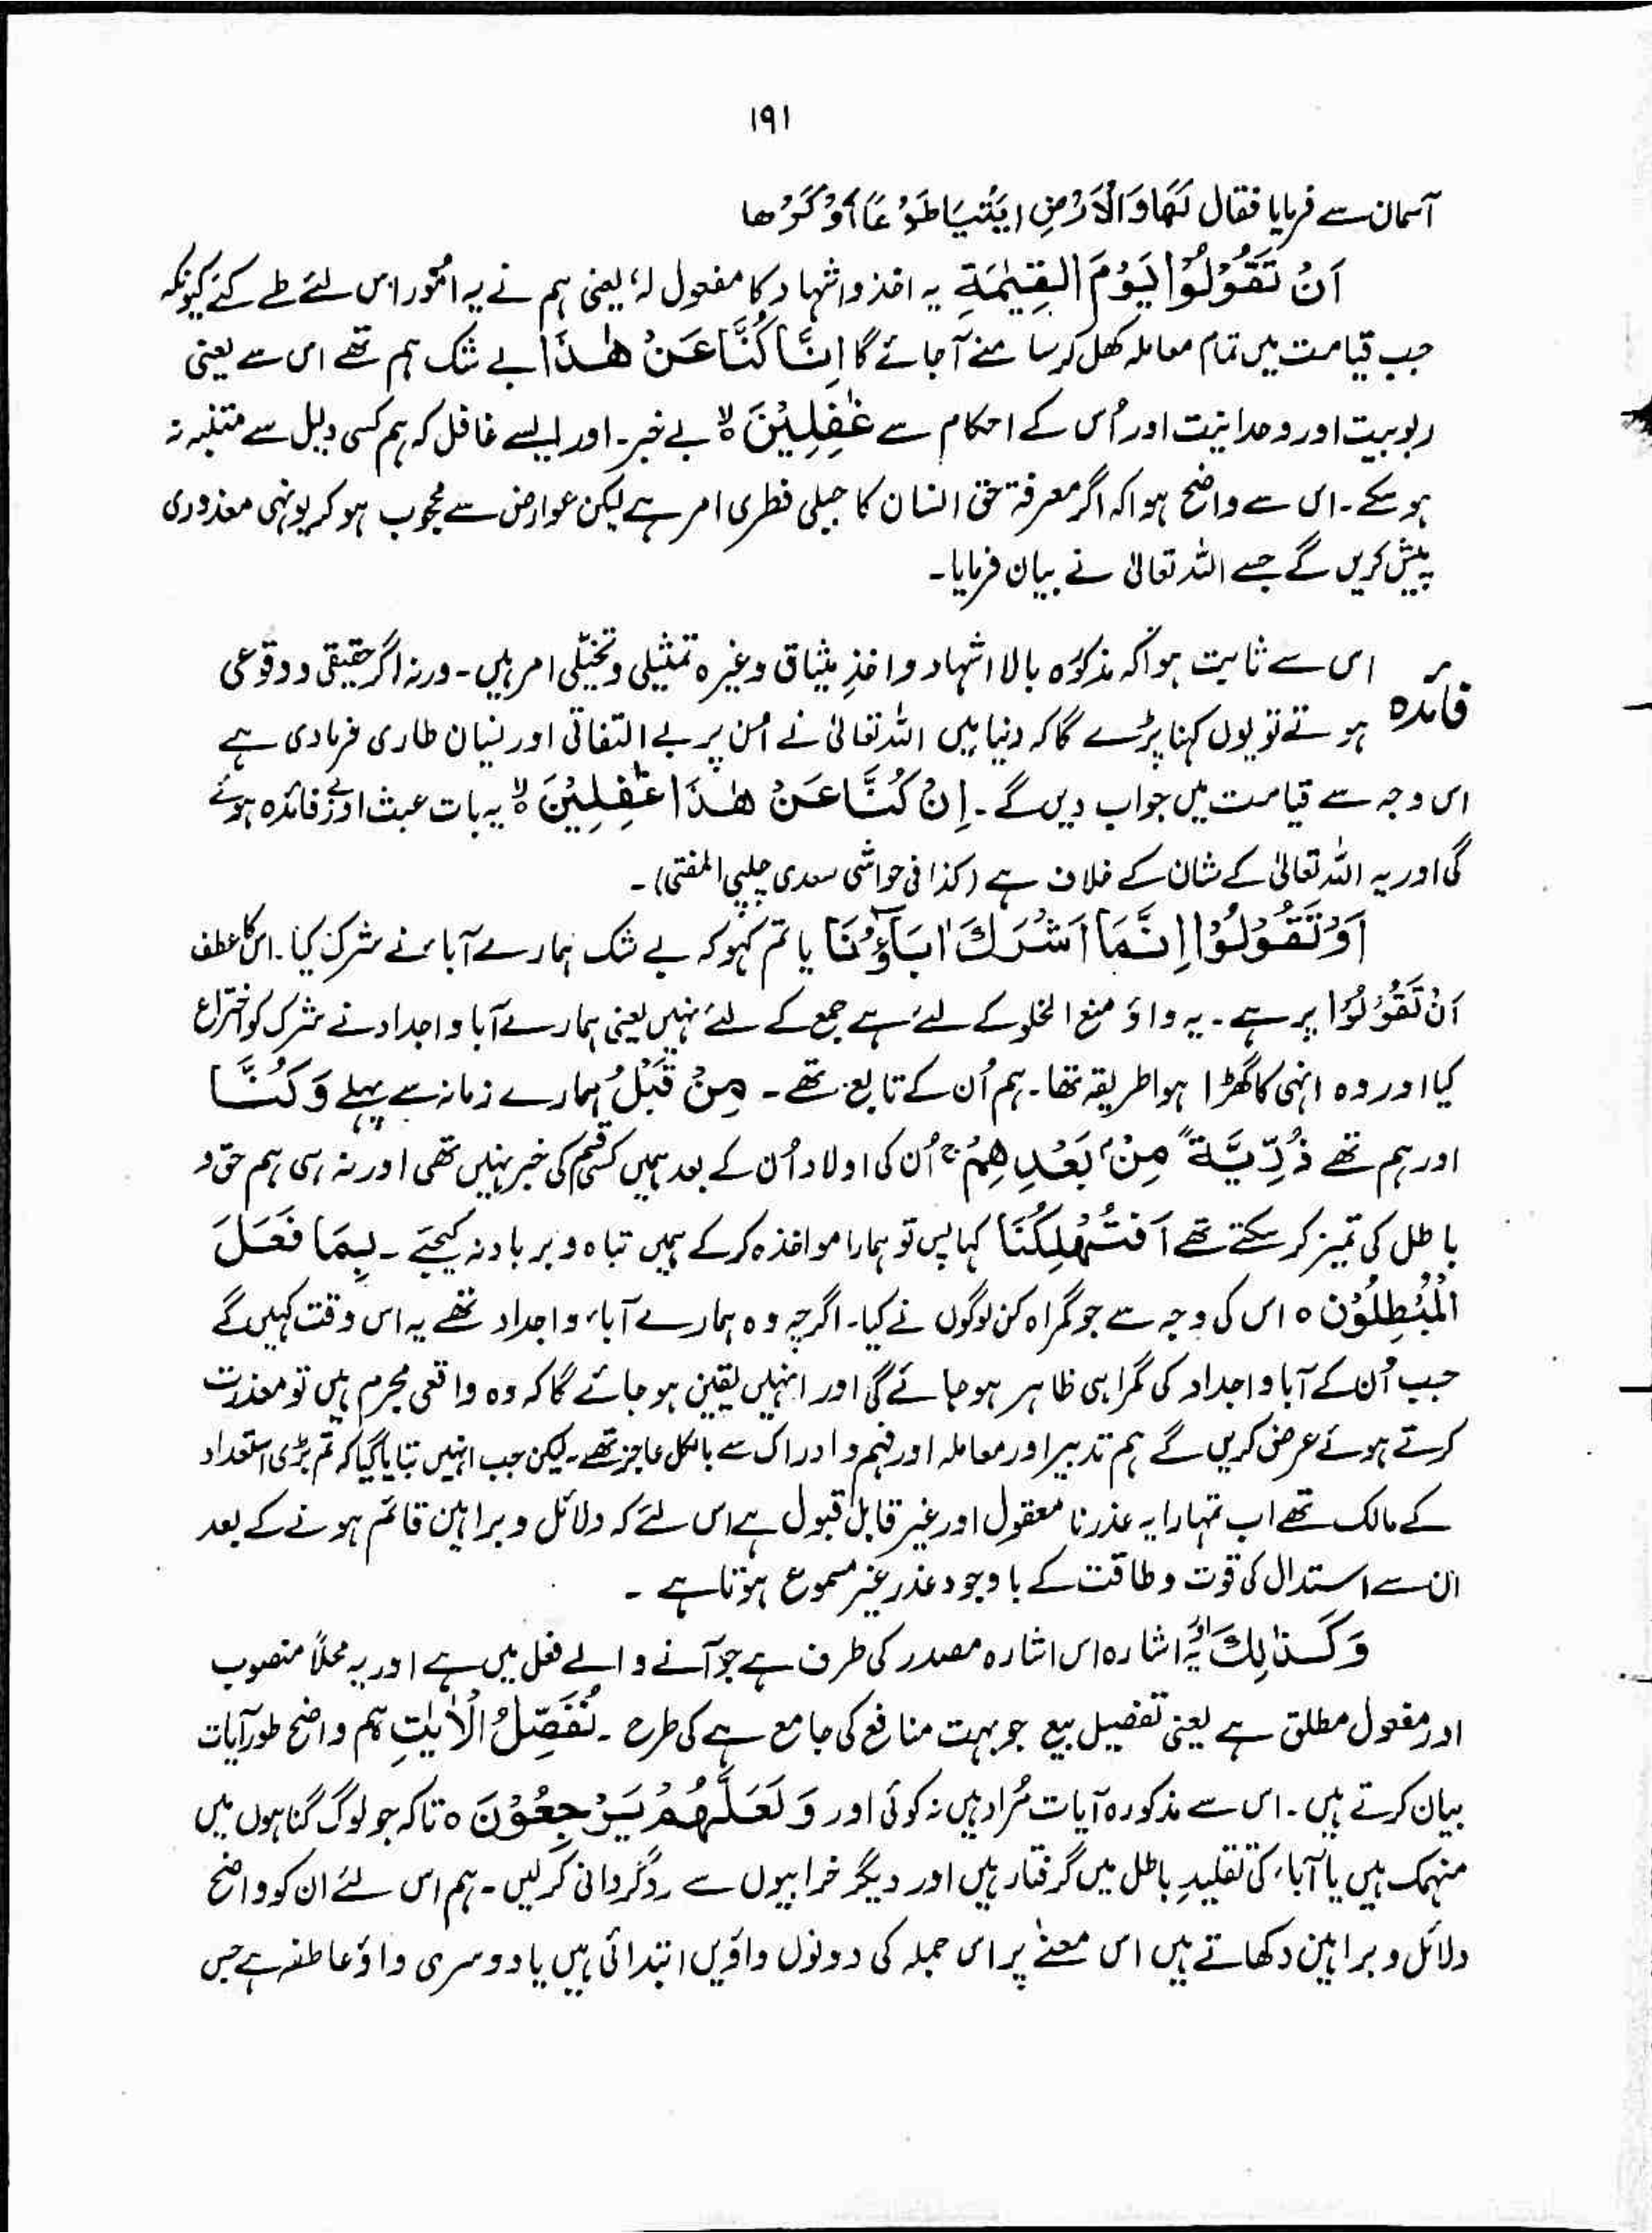 ۱۹۱
آسمان سے فرمایا فقال لَهَا وَالْاَرْضِ ایْتِیَا طَوْعًا اَوْ كَرْها
اَنْ تَقُوْلُوْا یَوْمَ الْقِیٰمَةِ یہ اخذ و اشہاد کا مفعول لہٗ یعنی ہم نے یہ امُور اس لئے طے کئے کیونکہ
جب قیامت میں تمام معاملہ کھل کر سامنے آجائے گا اِنَّا كُنَّا عَنْ هٰذَا بے شک ہم تھے اس سے یعنی
ربوبیت اور وحدانیت اور اُس کے احکام سے غٰفِلِیْنَ ۙ بے خبر۔ اور ایسے غافل کہ ہم کسی دلیل سے متنبہ نہ
ہو سکے۔ اس سے واضح ہوا کہ اگر معرفۃ حق انسان کا جبلی فطری امر ہے لیکن عوارض سے محجوب ہو کر یونہی معذوری
پیش کریں گے جسے اللہ تعالیٰ نے بیان فرمایا۔
فائدہ اس سے ثابت ہوا کہ مذکورہ بالا اشہاد و اخذِ میثاق وغیرہ تمثیلی و تخیّلی امر ہیں۔ ورنہ اگر حقیقی و وقوعی
ہوتے تو یوں کہنا پڑے گا کہ دنیا میں اللہ تعالیٰ نے اُن پر بے التفاتی اور نسیان طاری فرما دی ہے
اس وجہ سے قیامت میں جواب دیں گے۔ اِنْ كُنَّا عَنْ هٰذَا غٰفِلِیْنَ ۙ یہ بات عبث اور بے فائدہ ہوئے
گی اور یہ اللہ تعالیٰ کے شان کے خلاف ہے (کذا فی حواشی سعدی چلپی المفتی)۔
اَوْ تَقُوْلُوْا اِنَّمَا اَشْرَكَ اٰبَآؤُنَا یا تم کہو کہ بے شک ہمارے آباء نے شرک کیا۔ اس کا عطف
اَنْ تَقُوْلُوْا پر ہے۔ یہ واؤ منع الخلو کے لئے ہے جمع کے لئے نہیں یعنی ہمارے آبا و اجداد نے شرک کو اختراع
کیا اور وہ انہی کا گھڑا ہوا طریقہ تھا۔ ہم اُن کے تابع تھے۔ مِنْ قَبْلُ ہمارے زمانہ سے پہلے وَ كُنَّا
اور ہم تھے ذُرِّیَّةً مِّنْۢ بَعْدِهِمْ ۚ اُن کی اولاد اُن کے بعد ہمیں کسی قسم کی خبر نہیں تھی اور نہ ہی ہم حق و
باطل کی تمیز کر سکتے تھے اَفَتُهْلِكُنَا کیا پس تو ہمارا مواخذہ کر کے ہمیں تباہ و برباد نہ کیجئے۔ بِمَا فَعَلَ
الْمُبْطِلُوْن ہ اس کی وجہ سے جو گمراہ کن لوگوں نے کیا۔ اگرچہ وہ ہمارے آباء و اجداد تھے یہ اس وقت کہیں گے
جب اُن کے آبا و اجداد کی گمراہی ظاہر ہو جائے گی اور انہیں یقین ہو جائے گا کہ وہ واقعی مجرم ہیں تو معذرت
کرتے ہوئے عرض کریں گے ہم تدبیر اور معاملہ اور فہم و ادراک سے بالکل عاجز تھے۔ لیکن جب انہیں بتایا گیا کہ تم بڑی استعداد
کے مالک تھے اب تمہارا یہ عذر نا معقول اور غیر قابل قبول ہے اس لئے کہ دلائل و براہین قائم ہونے کے بعد
ان سے استدلال کی قوت و طاقت کے باوجود عذر غیر مسموع ہوتا ہے ۔
وَ كَذٰلِكَ اور یہ اشارہ اس اشارہ مصدر کی طرف ہے جو آنے والے فعل میں ہے اور یہ محلاً منصوب
اور مفعول مطلق ہے یعنی تفصیل بیع جو بہت منافع کی جامع ہے کی طرح ۔ نُفَصِّلُ الْاٰیٰتِ ہم واضح طور آیات
بیان کرتے ہیں۔ اس سے مذکورہ آیات مُراد ہیں نہ کوئی اور وَ لَعَلَّهُمْ یَرْجِعُوْنَ ہ تاکہ جو لوگ گناہوں میں
منہمک ہیں یا آباء کی تقلیدِ باطل میں گرفتار ہیں اور دیگر خرابیوں سے ردگردانی کر لیں۔ ہم اس لئے ان کو واضح
دلائل و براہین دکھاتے ہیں اس معنے پر اس جملہ کی دونوں واؤیں ابتدائی ہیں یا دوسری واؤ عاطفہ ہے جس